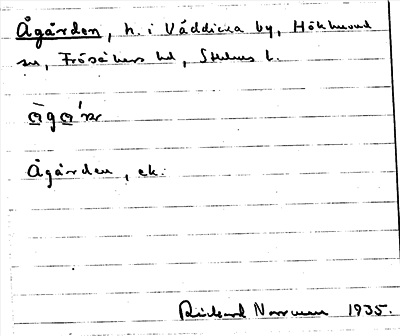 Ågården, h. i Väddicka by, Hökhuvud
sn, Frösåkers hd, Sthlms l.
ågɑ́'ɳ
Ågården, ek.
Rickard Norrman 1935.